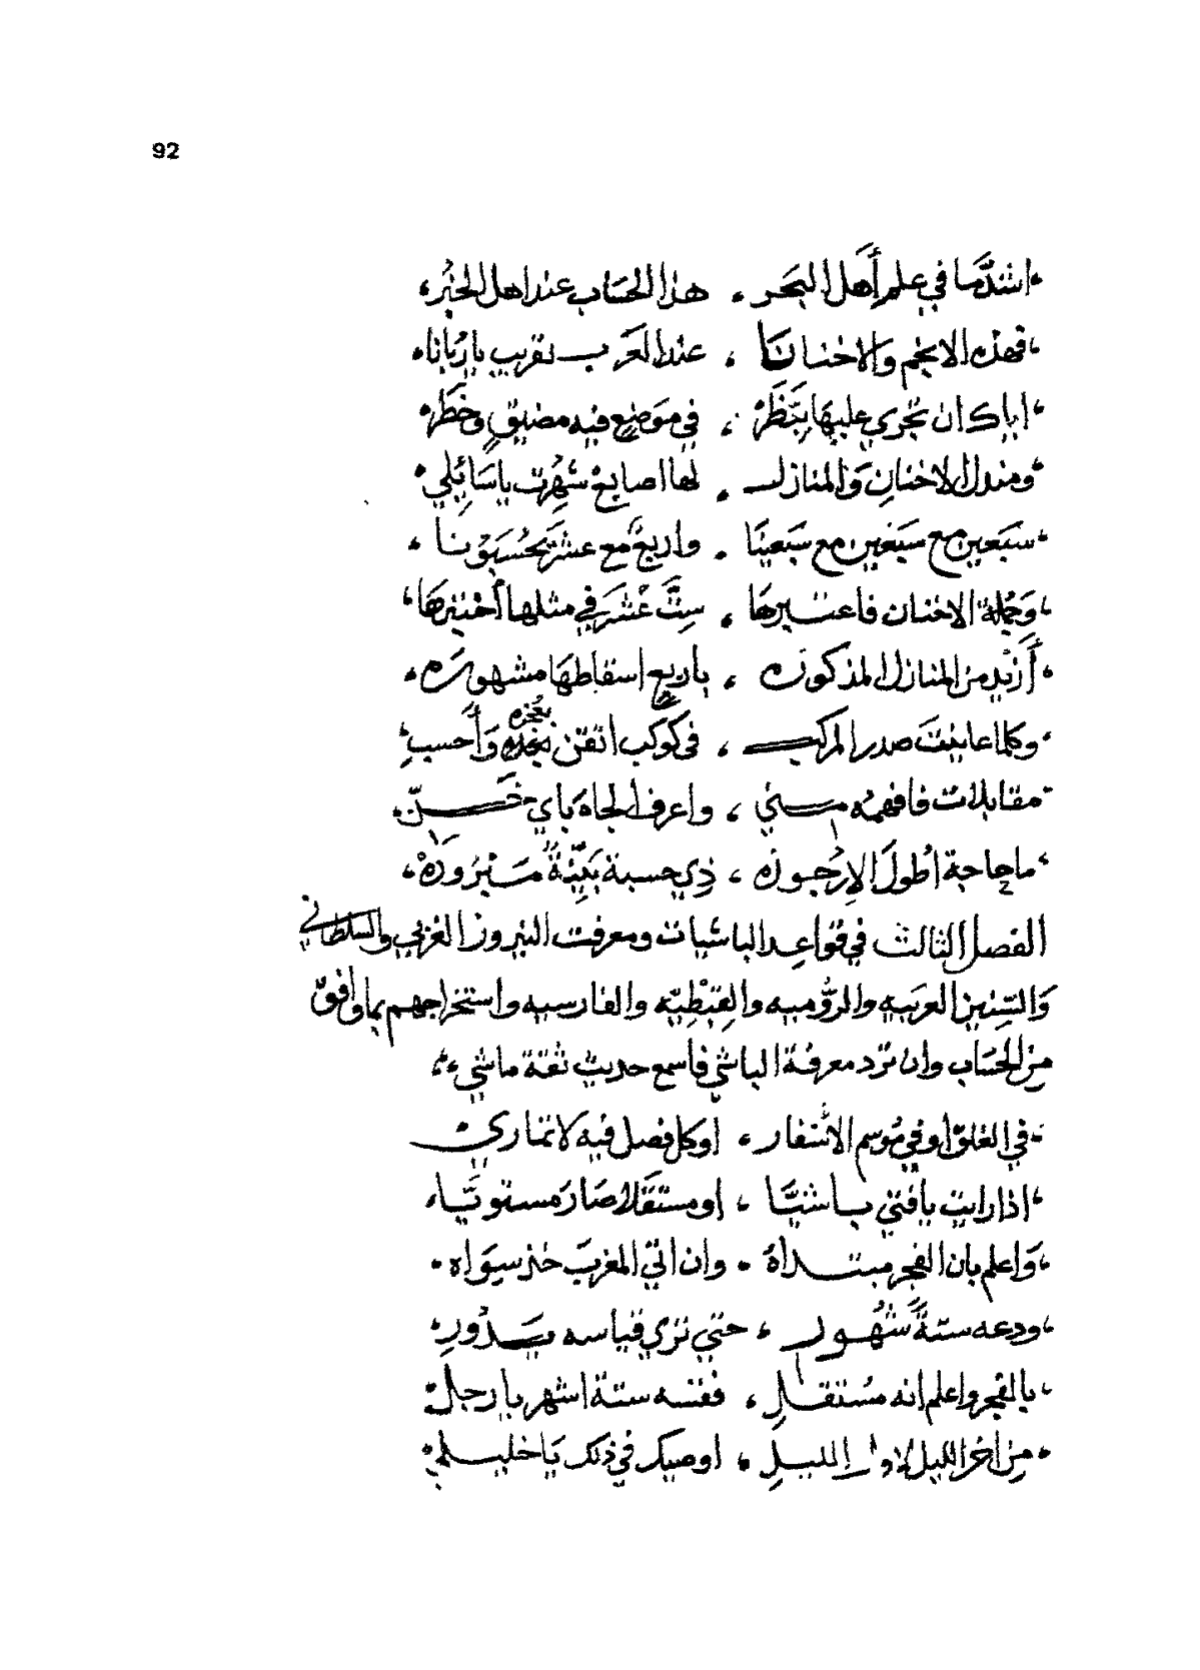 92
اشدَّما في علمِ أَهلِ البَحَر، هذا الحسَاب عند اهل الخُبْر،
فهذه الانجم والاخنانَا، عند العَرَب تقريب يا رُبّانا،
اياك ان تجري عليهَا بِنَظَرْ، في مَوَضِعٍ فيه مضيقٍ وخَطَرْ،
ومندل الاخنانِ وَالمنازل، لها اصابعْ شُهِرَت يا سَائِلي،
سَبَعين مع سَبَعين مع سَبَعينَا، واربعٌ مع عشرَةٍ يحُسَبَوُنا،
وَجُملة الاخنان فاعتبرهَا، سِتَّ عْشَرَ في مثلها أختبرهَا،
أَزْيد من المنازل المذكوره، باربعٍ اسقاطهَا مشهورَه،
وكلما عاينتَ صدر المركب، في كوكب اتقن بعجزه وَأَحسب،
مقابلات فافهمهُ مني، واعرف الجاهَ باي خَنّ،
ما حاجة اُطولَ الاِرُجوزَه، ذِي حسبة بَيّنةٌ مَبْرُوزَهْ،
الفصل الثالث في قوَاعِد الباشيات ومعرفت النيروز العَربي والسلطاني
وَالسِّنين العربَيه والرُّوميه والقِبْطِيّه والفارسيه واستخراجهم بما وافقَ
مِن الحسَاب وان تُرد معرفة الباشي فاسمع حديث ثقة ماشي،
في الغلق أو في مُوسم الأسفار، اوكل فصل فيه لا تماري
اذا رايت يا فتي باشيَّا، او مستقلا صَار مَستويَّا،
وَاعلم بان الفجر مبتداهُ، وان اتيَ المغربَ خذ سِوَاه،
ودعه ستةً شُهُور، حتي تري قياسه يَدُورِ،
بالفجر واعلم انه مُستقلِ، فقسه ستة اشهر يا رجل،
من أخر الليل لاول الليلِ، اوصيك في ذلك يَا خليلي،